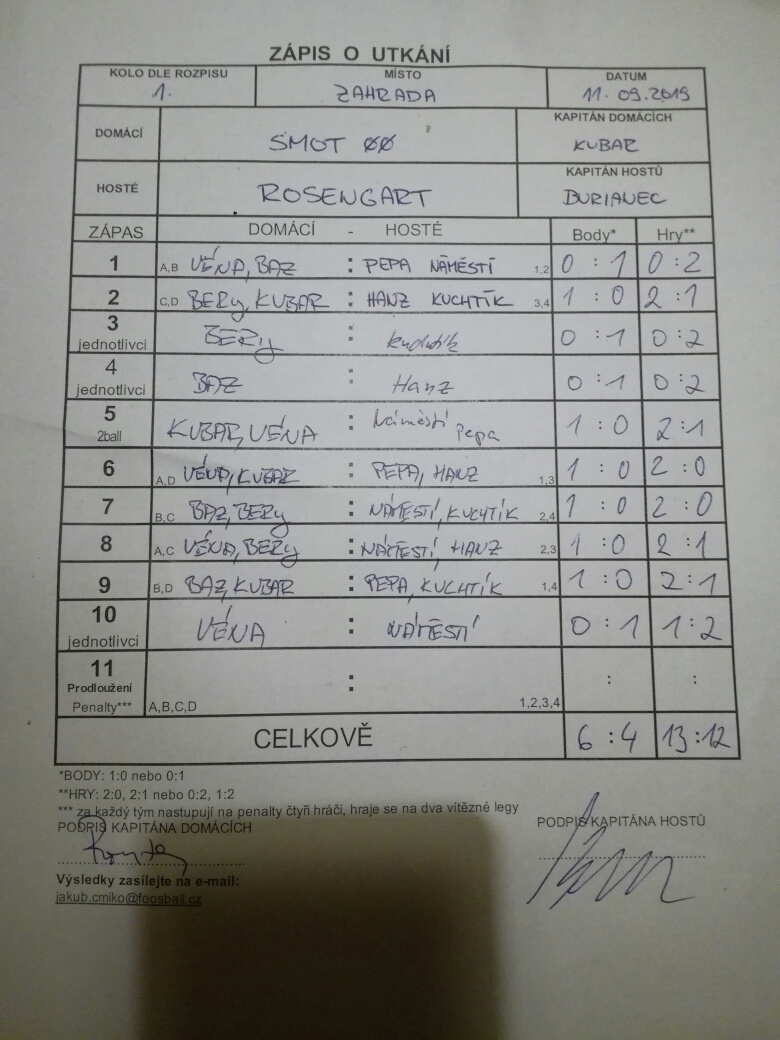 ZÁPIS O UTKÁNÍ
KOLO DLE ROZPISU MÍSTO DATUM
1. ZAHRADA 11. 09. 2019
DOMÁCÍ SMOT ØØ KAPITÁN DOMÁCÍCH
KUBAR
HOSTÉ ROSENGART KAPITÁN HOSTŮ
BURIANEC
ZÁPAS DOMÁCÍ - HOSTÉ Body* Hry**
1 A,B VÉNA, BAZ : PEPA NÁMĚSTÍ 1,2 0 : 1 0 : 2
2 C,D BERY, KUBAR : HANZ KUCHTÍK 3,4 1 : 0 2 : 1
3 jednotlivci BERY : kuchtík 0 : 1 0 : 2
4 jednotlivci BAZ : Hanz 0 : 1 0 : 2
5 2ball KUBAR, VÉNA : Náměstí Pepa 1 : 0 2 : 1
6 A,D VÉNA, KUBAR : PEPA, HANZ 1,3 1 : 0 2 : 0
7 B,C BAZ, BERY : NÁMĚSTÍ, KUCHTÍK 2,4 1 : 0 2 : 0
8 A,C VÉNA, BERY : NÁMĚSTÍ, HANZ 2,3 1 : 0 2 : 1
9 B,D BAZ, KUBAR : PEPA, KUCHTÍK 1,4 1 : 0 2 : 1
10 jednotlivci VÉNA : NÁMĚSTÍ 0 : 1 1 : 2
11 Prodloužení : : :
Penalty*** A,B,C,D 1,2,3,4
CELKOVĚ 6 : 4 13 : 12
*BODY: 1:0 nebo 0:1
**HRY: 2:0, 2:1 nebo 0:2, 1:2
*** za každý tým nastupují na penalty čtyři hráči, hraje se na dva vítězné legy
PODPIS KAPITÁNA DOMÁCÍCH PODPIS KAPITÁNA HOSTŮ
Výsledky zasílejte na e-mail:
jakub.cmiko@foosball.cz